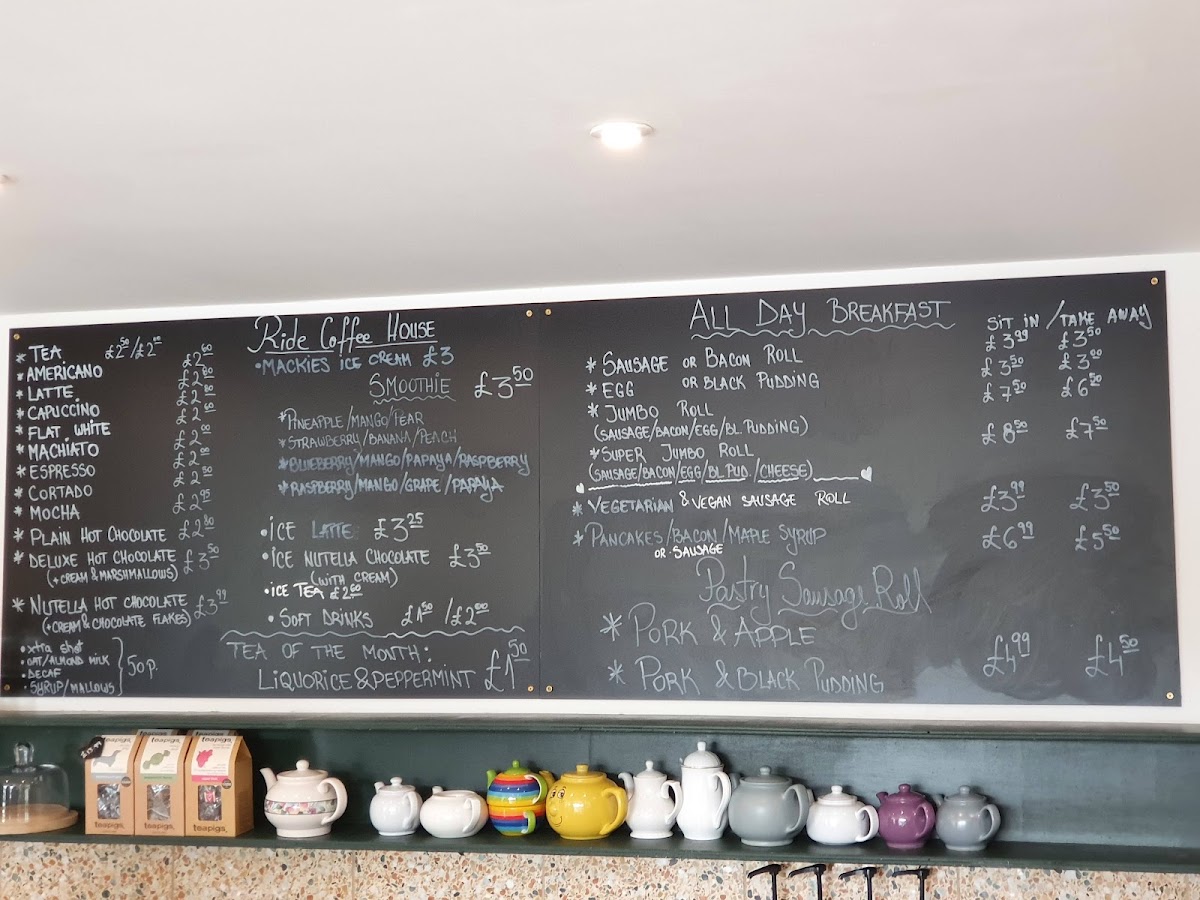 Ride Coffee House
* TEA
* AMERICANO £2.60
* LATTE £2.80
* CAPUCCINO
* FLAT WHITE
* MACHIATO
* ESPRESSO
* CORTADO
* MOCHA £2.95
* PLAIN HOT CHOCOLATE £2.80
* DELUXE HOT CHOCOLATE £3.50
(+CREAM & MARSHMALLOWS)
* NUTELLA HOT CHOCOLATE £3.99
(+CREAM & CHOCOLATE FLAKES)
• xtra shot
• OAT/ALMOND MILK
• DECAF
• SYRUP/MALLOWS
50p.
• MACKIES ICE CREAM £3
SMOOTHIE £3.50
* PINEAPPLE/MANGO/PEAR
* STRAWBERRY/BANANA/PEACH
* BLUEBERRY/MANGO/PAPAYA/RASPBERRY
* RASPBERRY/MANGO/GRAPE/PAPAYA
• ICE LATTE £3.25
• ICE NUTELLA CHOCOLATE £3.50
(WITH CREAM)
• ICE TEA
• SOFT DRINKS £1.50/£2.00
TEA OF THE MONTH:
LIQUORICE & PEPPERMINT £1.50
ALL DAY BREAKFAST
SIT IN / TAKE AWAY
* SAUSAGE OR BACON ROLL £3.99 £3.50
* EGG OR BLACK PUDDING £3.50 £3.00
* JUMBO ROLL £7.50 £6.50
(SAUSAGE/BACON/EGG/BL. PUDDING)
* SUPER JUMBO ROLL £8.50 £7.50
(SAUSAGE/BACON/EGG/BL.PUD./CHEESE)
* VEGETARIAN & VEGAN SAUSAGE ROLL £3.99 £3.50
* PANCAKES/BACON/MAPLE SYRUP £6.99 £5.50
OR SAUSAGE
Pastry Sausage Roll
* PORK & APPLE
* PORK & BLACK PUDDING £4.99 £4.50
teapigs.
teapigs.
teapigs.